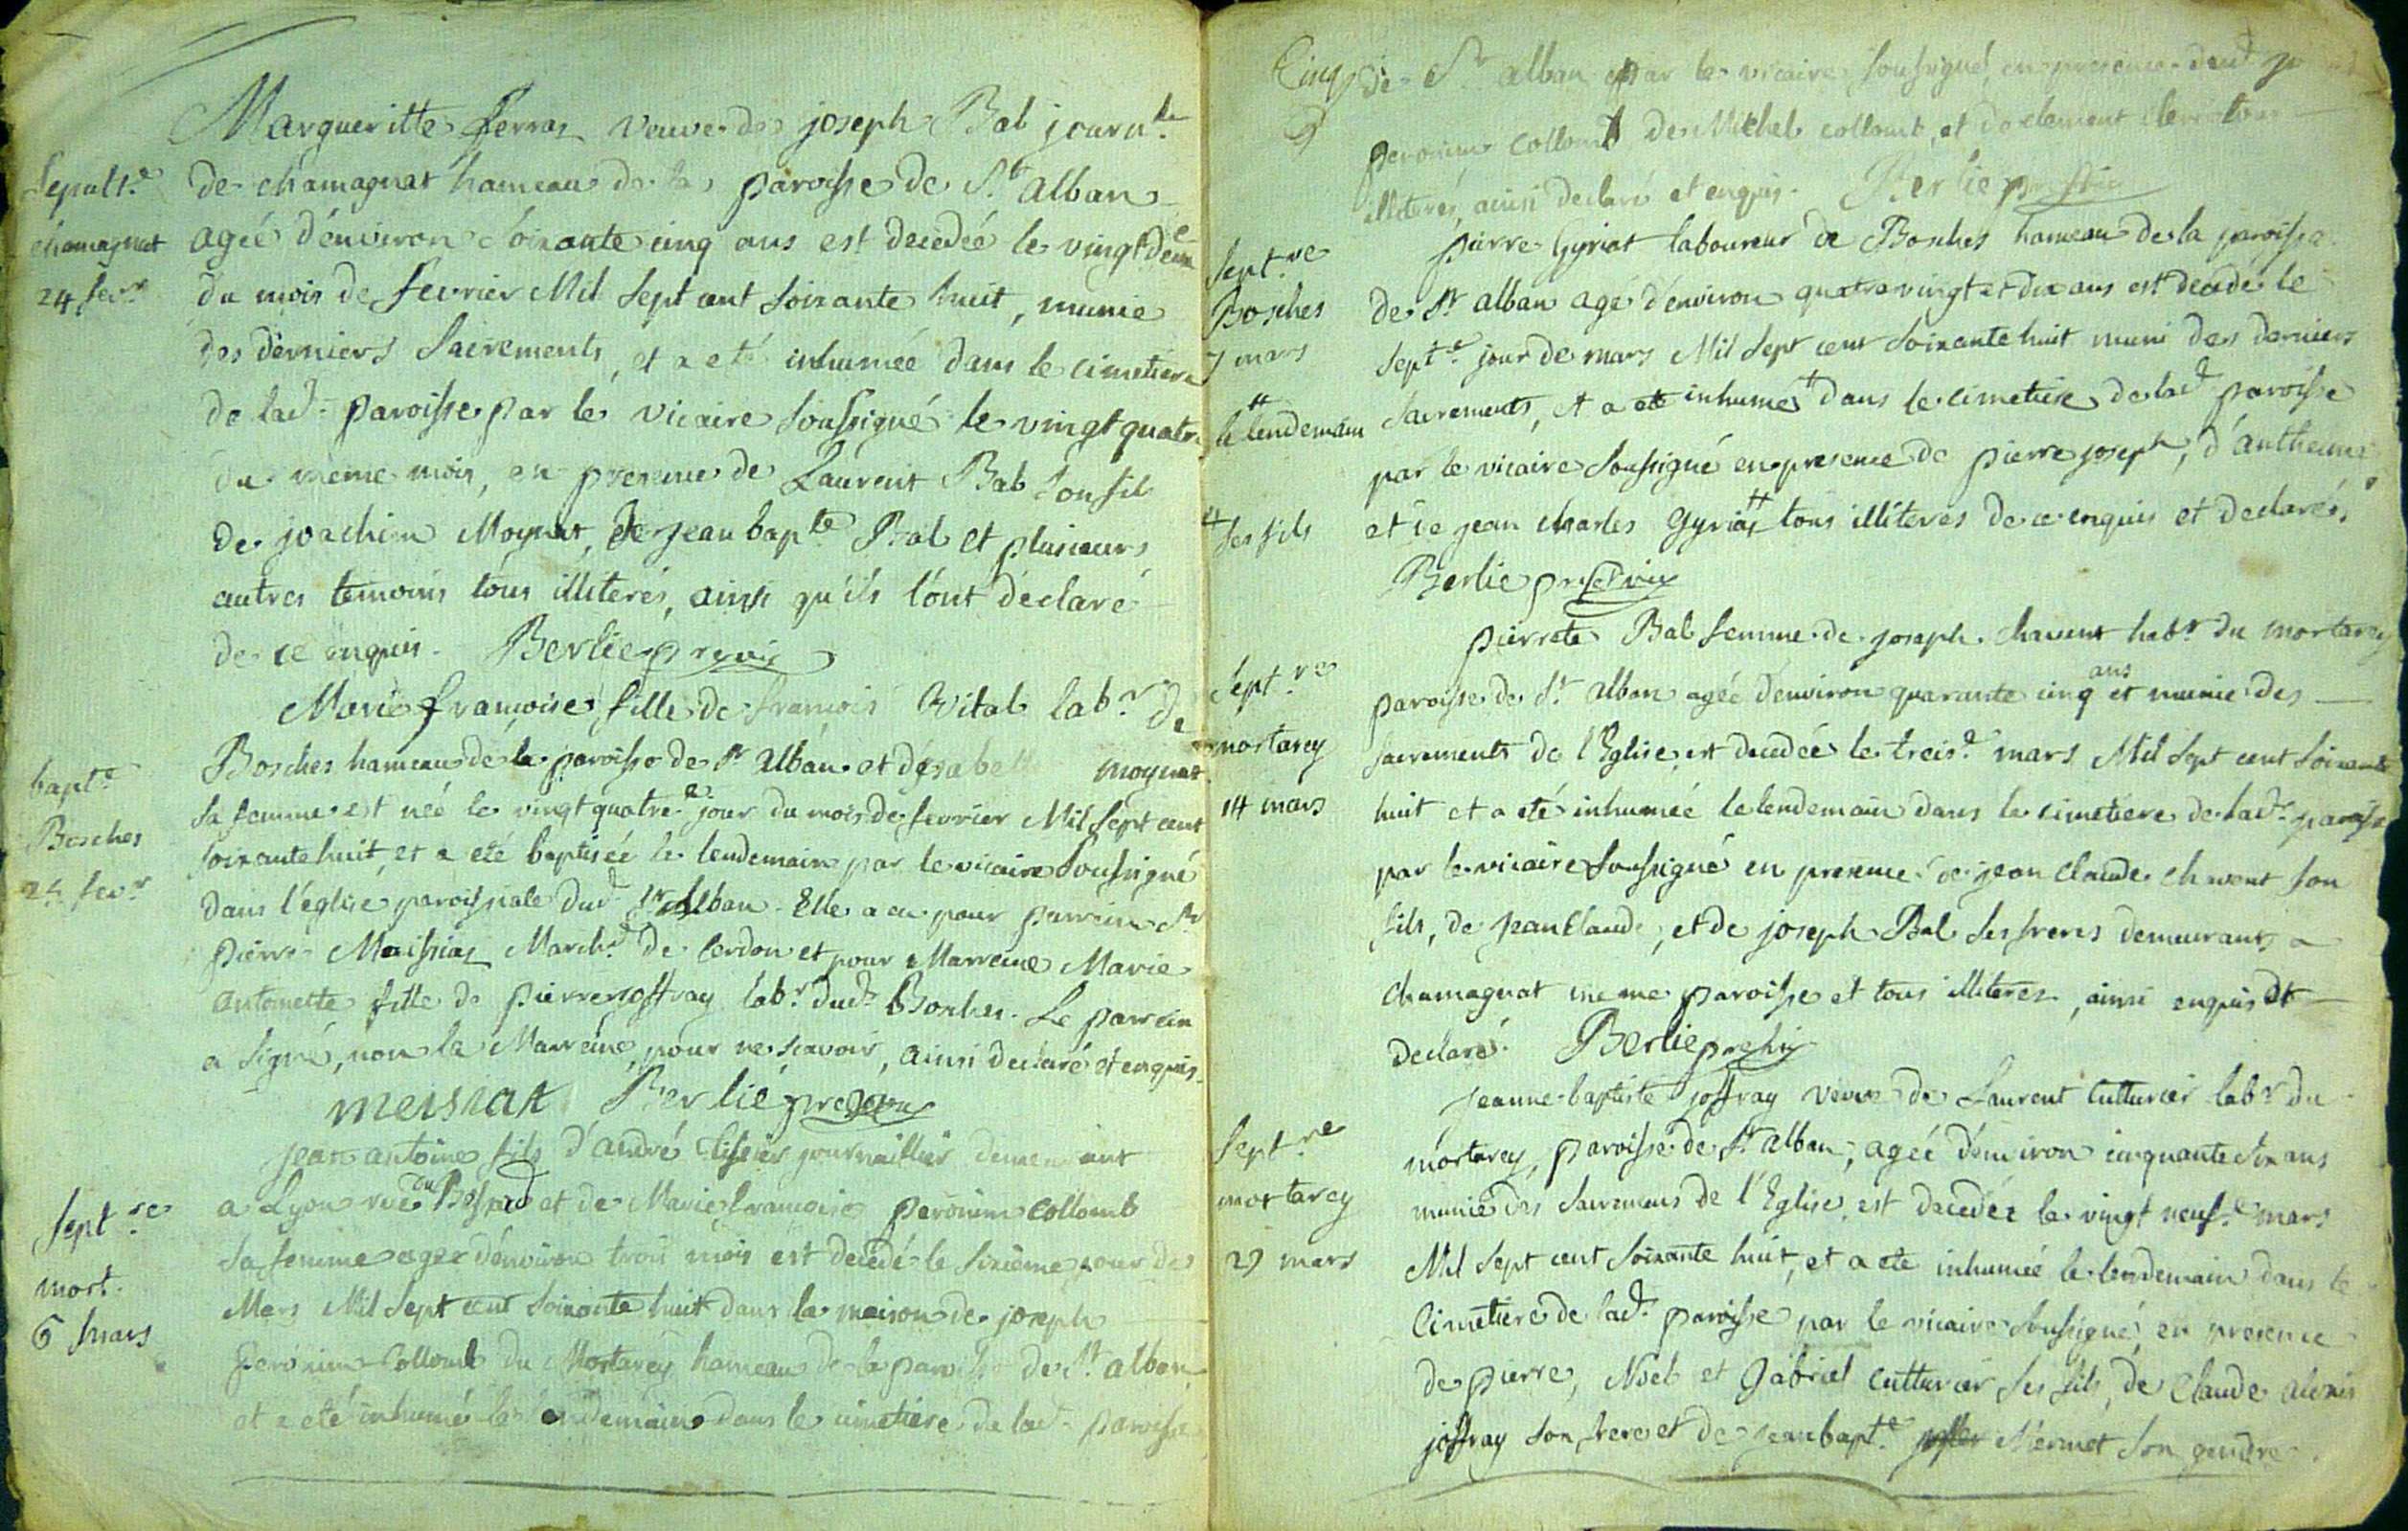 Margueritte ferraz veuve de joseph Bal journ.re
Sepult.e
chamagnat
24 fevr.
de chamagnat hameau de la paroisse de St. alban
agée d'environ soixante cinq ans est decedée le vingt deux.e
du mois de fevrier Mil sept cent soixante huit, munie
des derniers Sacrements, et a eté inhumée dans le cimetiere
de lad.e paroisse par le vicaire soussigné le vingt quatre
du meme mois, en presence de Laurent Bal son fils
de joachim Moynat, de jean bapte Bal et plusieurs
autres temoins tous illiterés, ainsi qu'ils l'ont declaré
de ce enquis. Berlie
Marie françoise fille de françois Vital labr. de
bapt.e
Bosches
25 fevr.
Bosches hameau de la paroisse de St alban et d'ysabelle moynat
sa femme est née le vingt quatre.e jour du mois de fevrier Mil sept cent
soixante huit, et a eté baptisée le lendemain par le vicaire soussigné
dans l'église paroissiale dud. St Alban. Elle a eu pour parrein Sr
pierre Maissiaz March.d de Cerdon et pour Marreine Marie
antonette fille de pierre joffray labr. dud. Bosches. Le parrein
a signé, non la Marreine pour ne scavoir, ainsi declaré et enquis.
meissiat Berlié
jean antoine fils d'andré journaillier demeurant
Sept.re
mort.
6 mars
a Lyon rue du et de Marie françoise peronin collomb
sa femme agé d'environ trois mois est decedé le sixieme jour de
Mars Mil sept cent soixante huit dans la maison de joseph
peronin collomb du Mortarey hameau de la paroisse de St. alban
et a eté inhumé le lendemain dans le cimetiere de lad.e paroisse
Cinq
de St alban par le vicaire soussigné, en presence dud.
peronin collomb de Michel collomb, et de clement tous
illiterés, ainsi declaré et enquis. Berlie
pierre Gyriat laboureur de Bosches hameau de la paroisse
Sept.re
Bosches
7 mars
de St alban agé d'environ quatre vingt et dix ans est decedé le
sept.e jour de mars Mil sept cent soixante huit muni des derniers
sacrements, et a eté inhumé # dans le cimetiere de lad.e paroisse
# le lendemain
par le vicaire soussigné en presence de pierre joseph, d'anthelme
et de jean charles Gyriat # tous illiterés de ce enquis et declarés.
# ses fils
Berlie
pierrete Bal femme de joseph chavent habt. du mortarey
Sept.re
mortarey
14 mars
paroisse de St. alban agée d'environ quarante cinq ans et munie des
sacrements de l'Eglise est decedée le treis.e mars Mil sept cent soixante
huit et a eté inhumée le lendemain dans le cimetiere de lad.e paroisse
par le vicaire soussigné en presence de jean claude chavent son
fils, de jean claude, et de joseph Bal ses freres demeurants a
chamagnat meme paroisse et tous illiterés, ainsi enquis et
declaré. Berlie
jeanne baptiste joffray veuve de Laurent Cutturier labr. du
Sept.re
mortarey
29 mars
mortarey, paroisse de St alban, agée d'environ cinquante six ans
munie des sacremens de l'Eglise, est decedée le vingt neuf.e mars
Mil sept cent soixante huit, et a eté inhumée le lendemain dans le
cimetiere de lad.e paroisse par le vicaire soussigné, en presence
de pierre, Noel et Gabriel Cutturier ses fils, de Claude alexis
joffray son frere et de jean bapt.e Mermet son gendre.